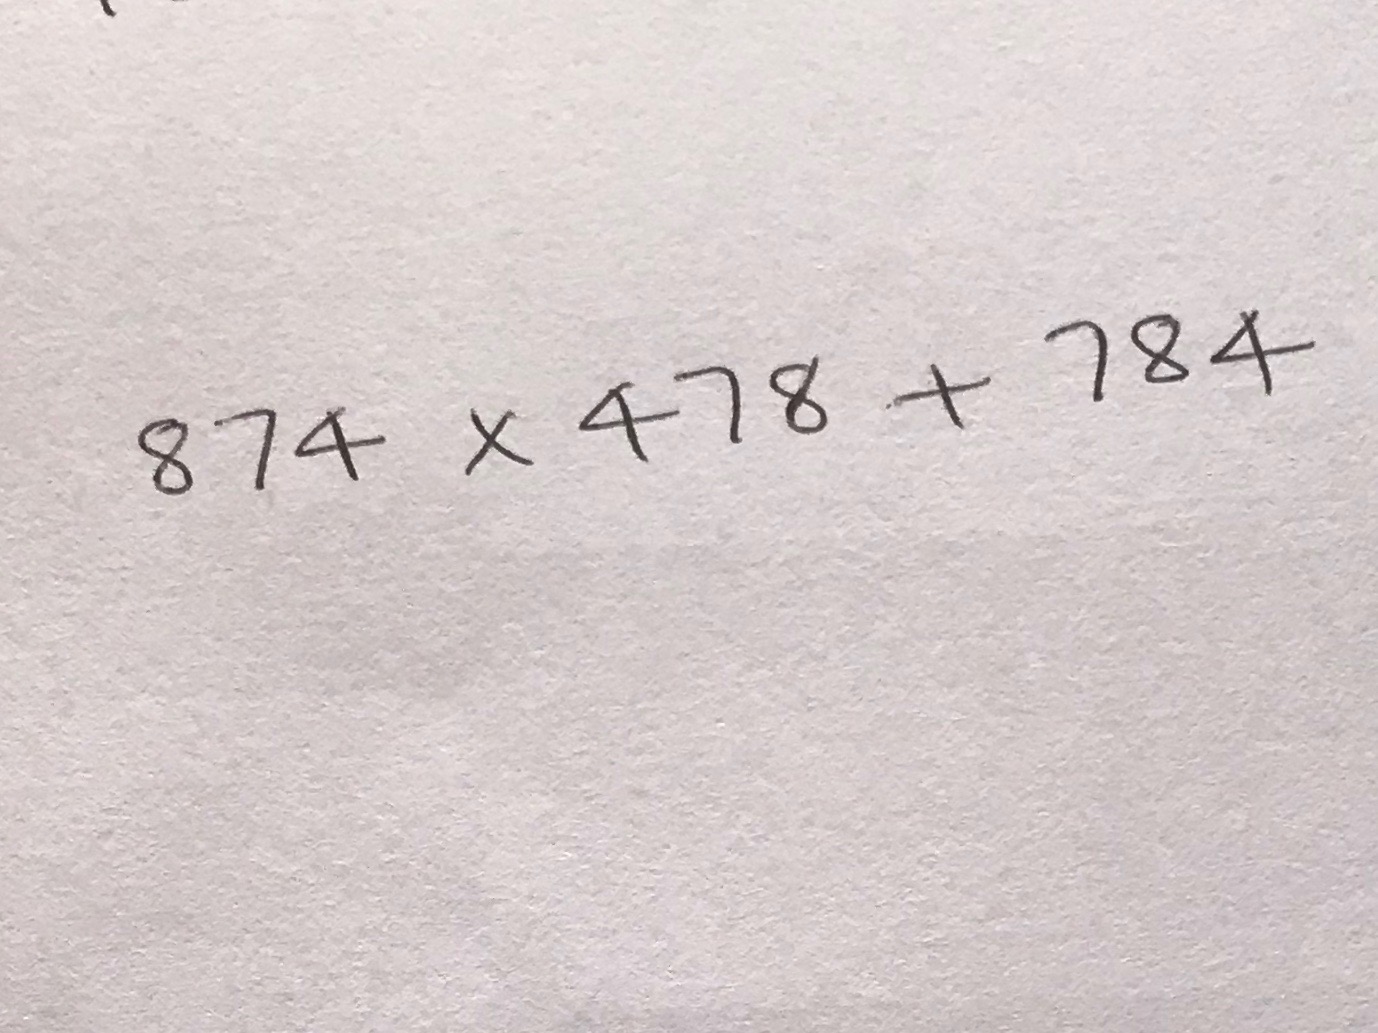 874 × 478 + 784